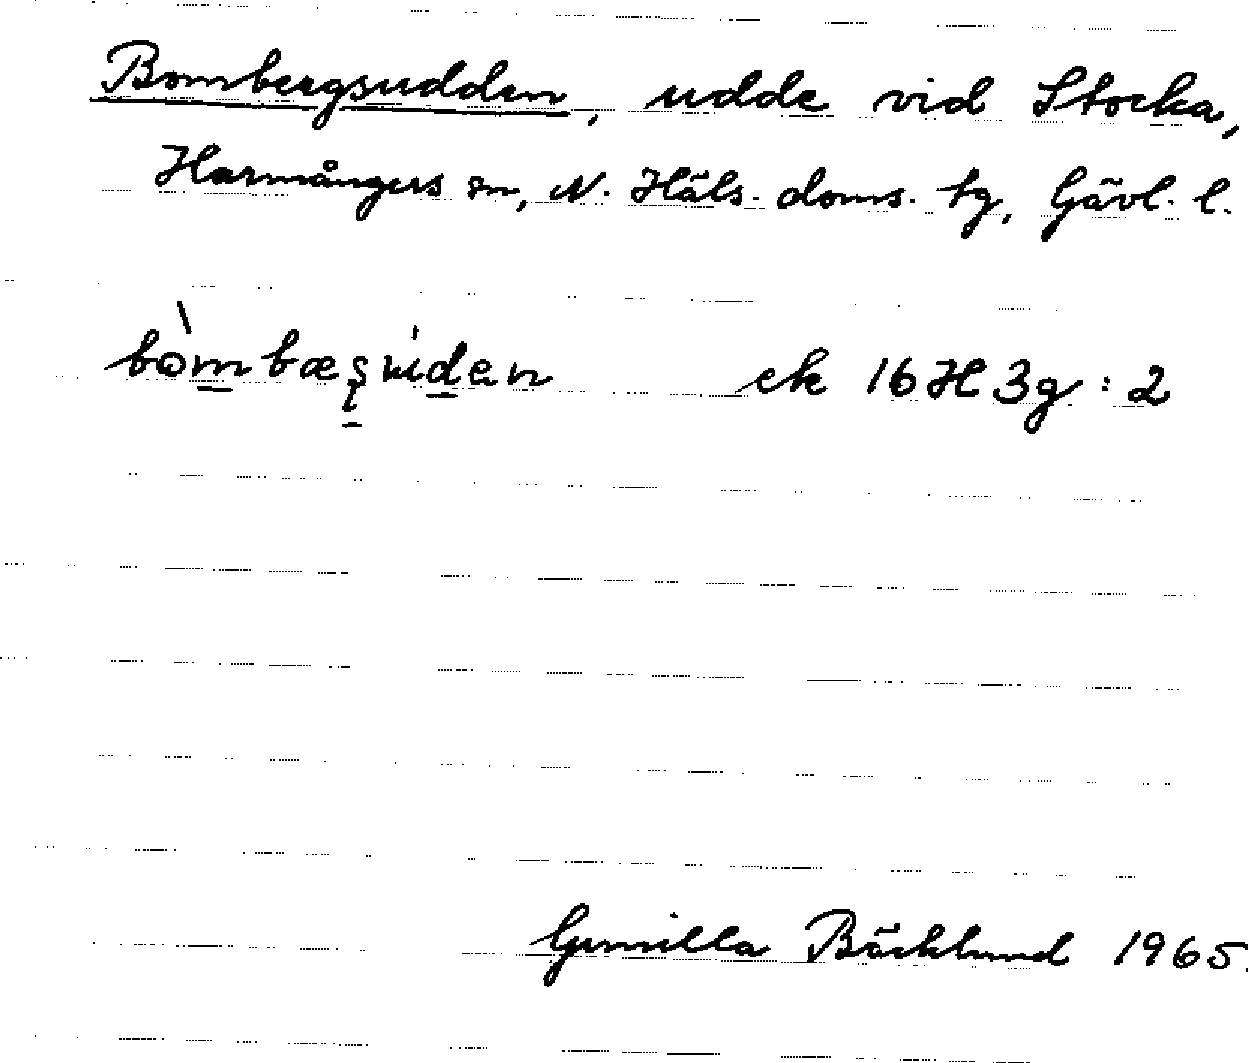 Bombergsudden, udde vid Stocka,
Harmångers sn, N. Häls. doms. tg, Gävl. l.
ek 16H3g:2
Gunilla Bäcklund 1965.